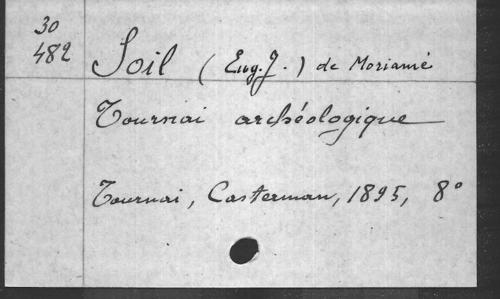 30
482
Soil (Eug. J.) de Moriamé
Tournai archéologique
Tournai, Casterman, 1895, 8°